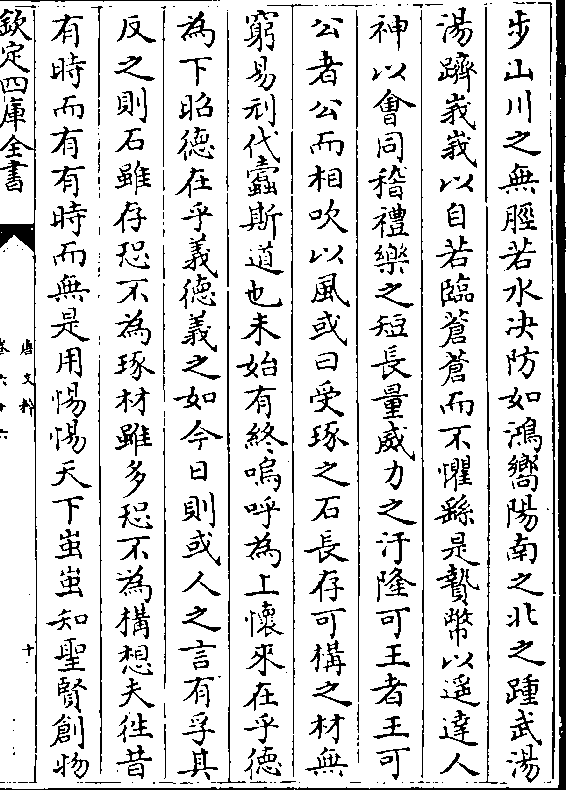 步山川之無脛若水决防如鴻嚮陽南之北之踵武湯
湯躋峩峩以自若臨蒼蒼而不懼繇是贄幣以遥達人
神以會同稽禮樂之短長量威力之汙隆可王者王可
公者公而相吹以風或曰受琢之石長存可構之材無
窮易刓代蠹斯道也未始有終嗚呼為上懷來在乎德
為下昭德在乎義德義之如今日則或人之言有孚其
反之則石雖存恐不為琢材雖多恐不為構想夫徃昔
有時而有有時而無是用惕惕天下蚩蚩知聖賢創物
欽定四庫全書
唐文粹
卷六十六
十